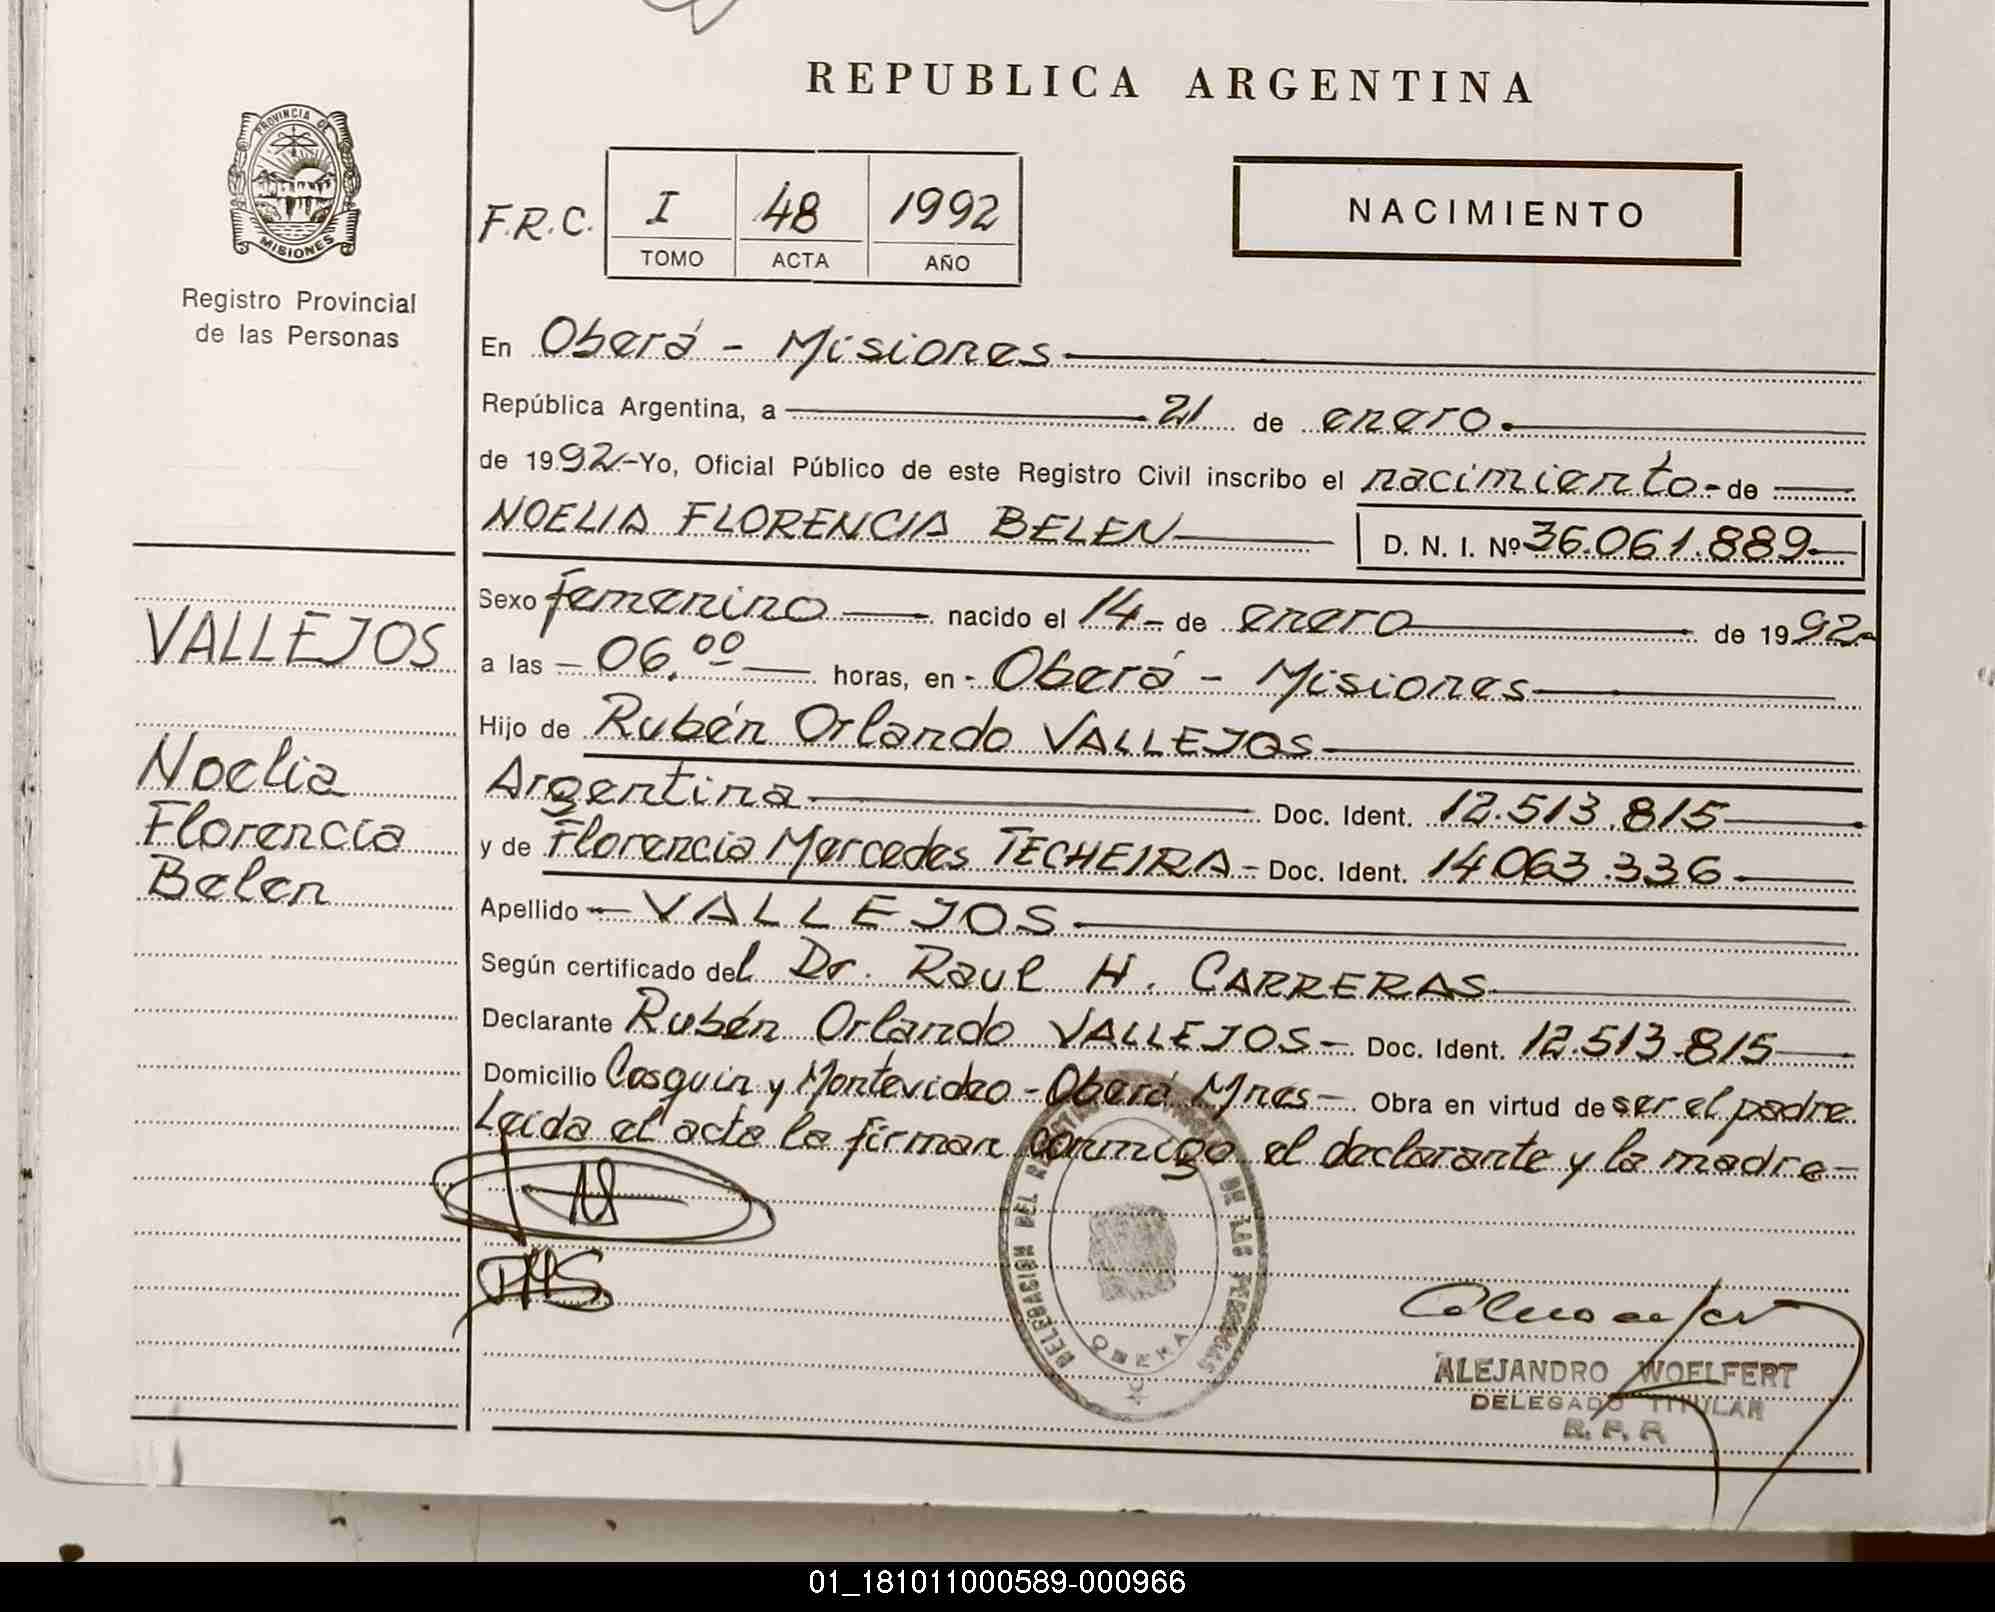 REPUBLICA ARGENTINA
PROVINCIA DE
MISIONES
Registro Provincial
de las Personas
F.R.C. I 48 1992
TOMO ACTA AÑO
NACIMIENTO
En Oberá - Misiones
República Argentina, a 21 de enero.
de 1992.-Yo, Oficial Público de este Registro Civil inscribo el nacimiento- de
NOELIA FLORENCIA BELEN D. N. I. Nº 36.061.889-
Sexo femenino nacido el 14- de enero de 1992-
a las - 06.00 horas, en - Oberá - Misiones
Hijo de Rubén Orlando VALLEJOS
Argentina Doc. Ident. 12.513.815
y de Florencia Mercedes TECHEIRA - Doc. Ident. 14.063.336
Apellido - VALLEJOS
Según certificado del Dr. Raul H. CARRERAS
Declarante Rubén Orlando VALLEJOS - Doc. Ident. 12.513.815
Domicilio Cosquin y Montevideo - Oberá Mnes - Obra en virtud de ser el padre
Leida el acta la firman conmigo el declarante y la madre -
VALLEJOS
Noelia
Florencia
Belen
DELEGACION DEL REGISTRO DE LAS PERSONAS
OBERA
ALEJANDRO WOELFERT
DELEGADO TITULAR
R. P. P.
01_181011000589-000966